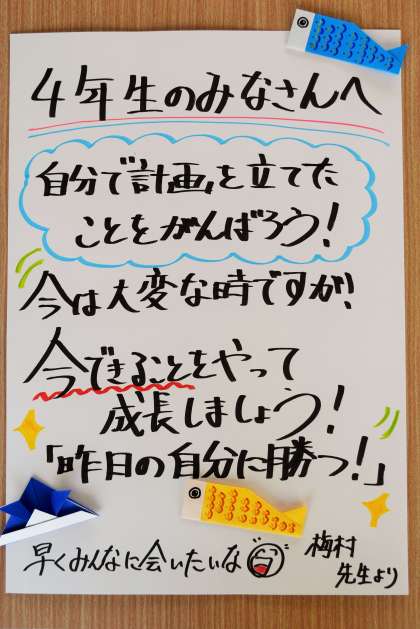 4年生のみなさんへ
自分で計画を立てた
ことをがんばろう!
今は大変な時ですが!
今できることをやって
成長しましょう!
「昨日の自分に勝つ!」
早くみんなに会いたいな
梅村
先生より